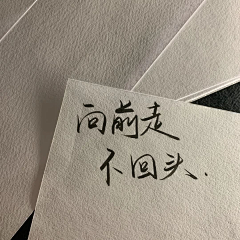 向前走
不回头.